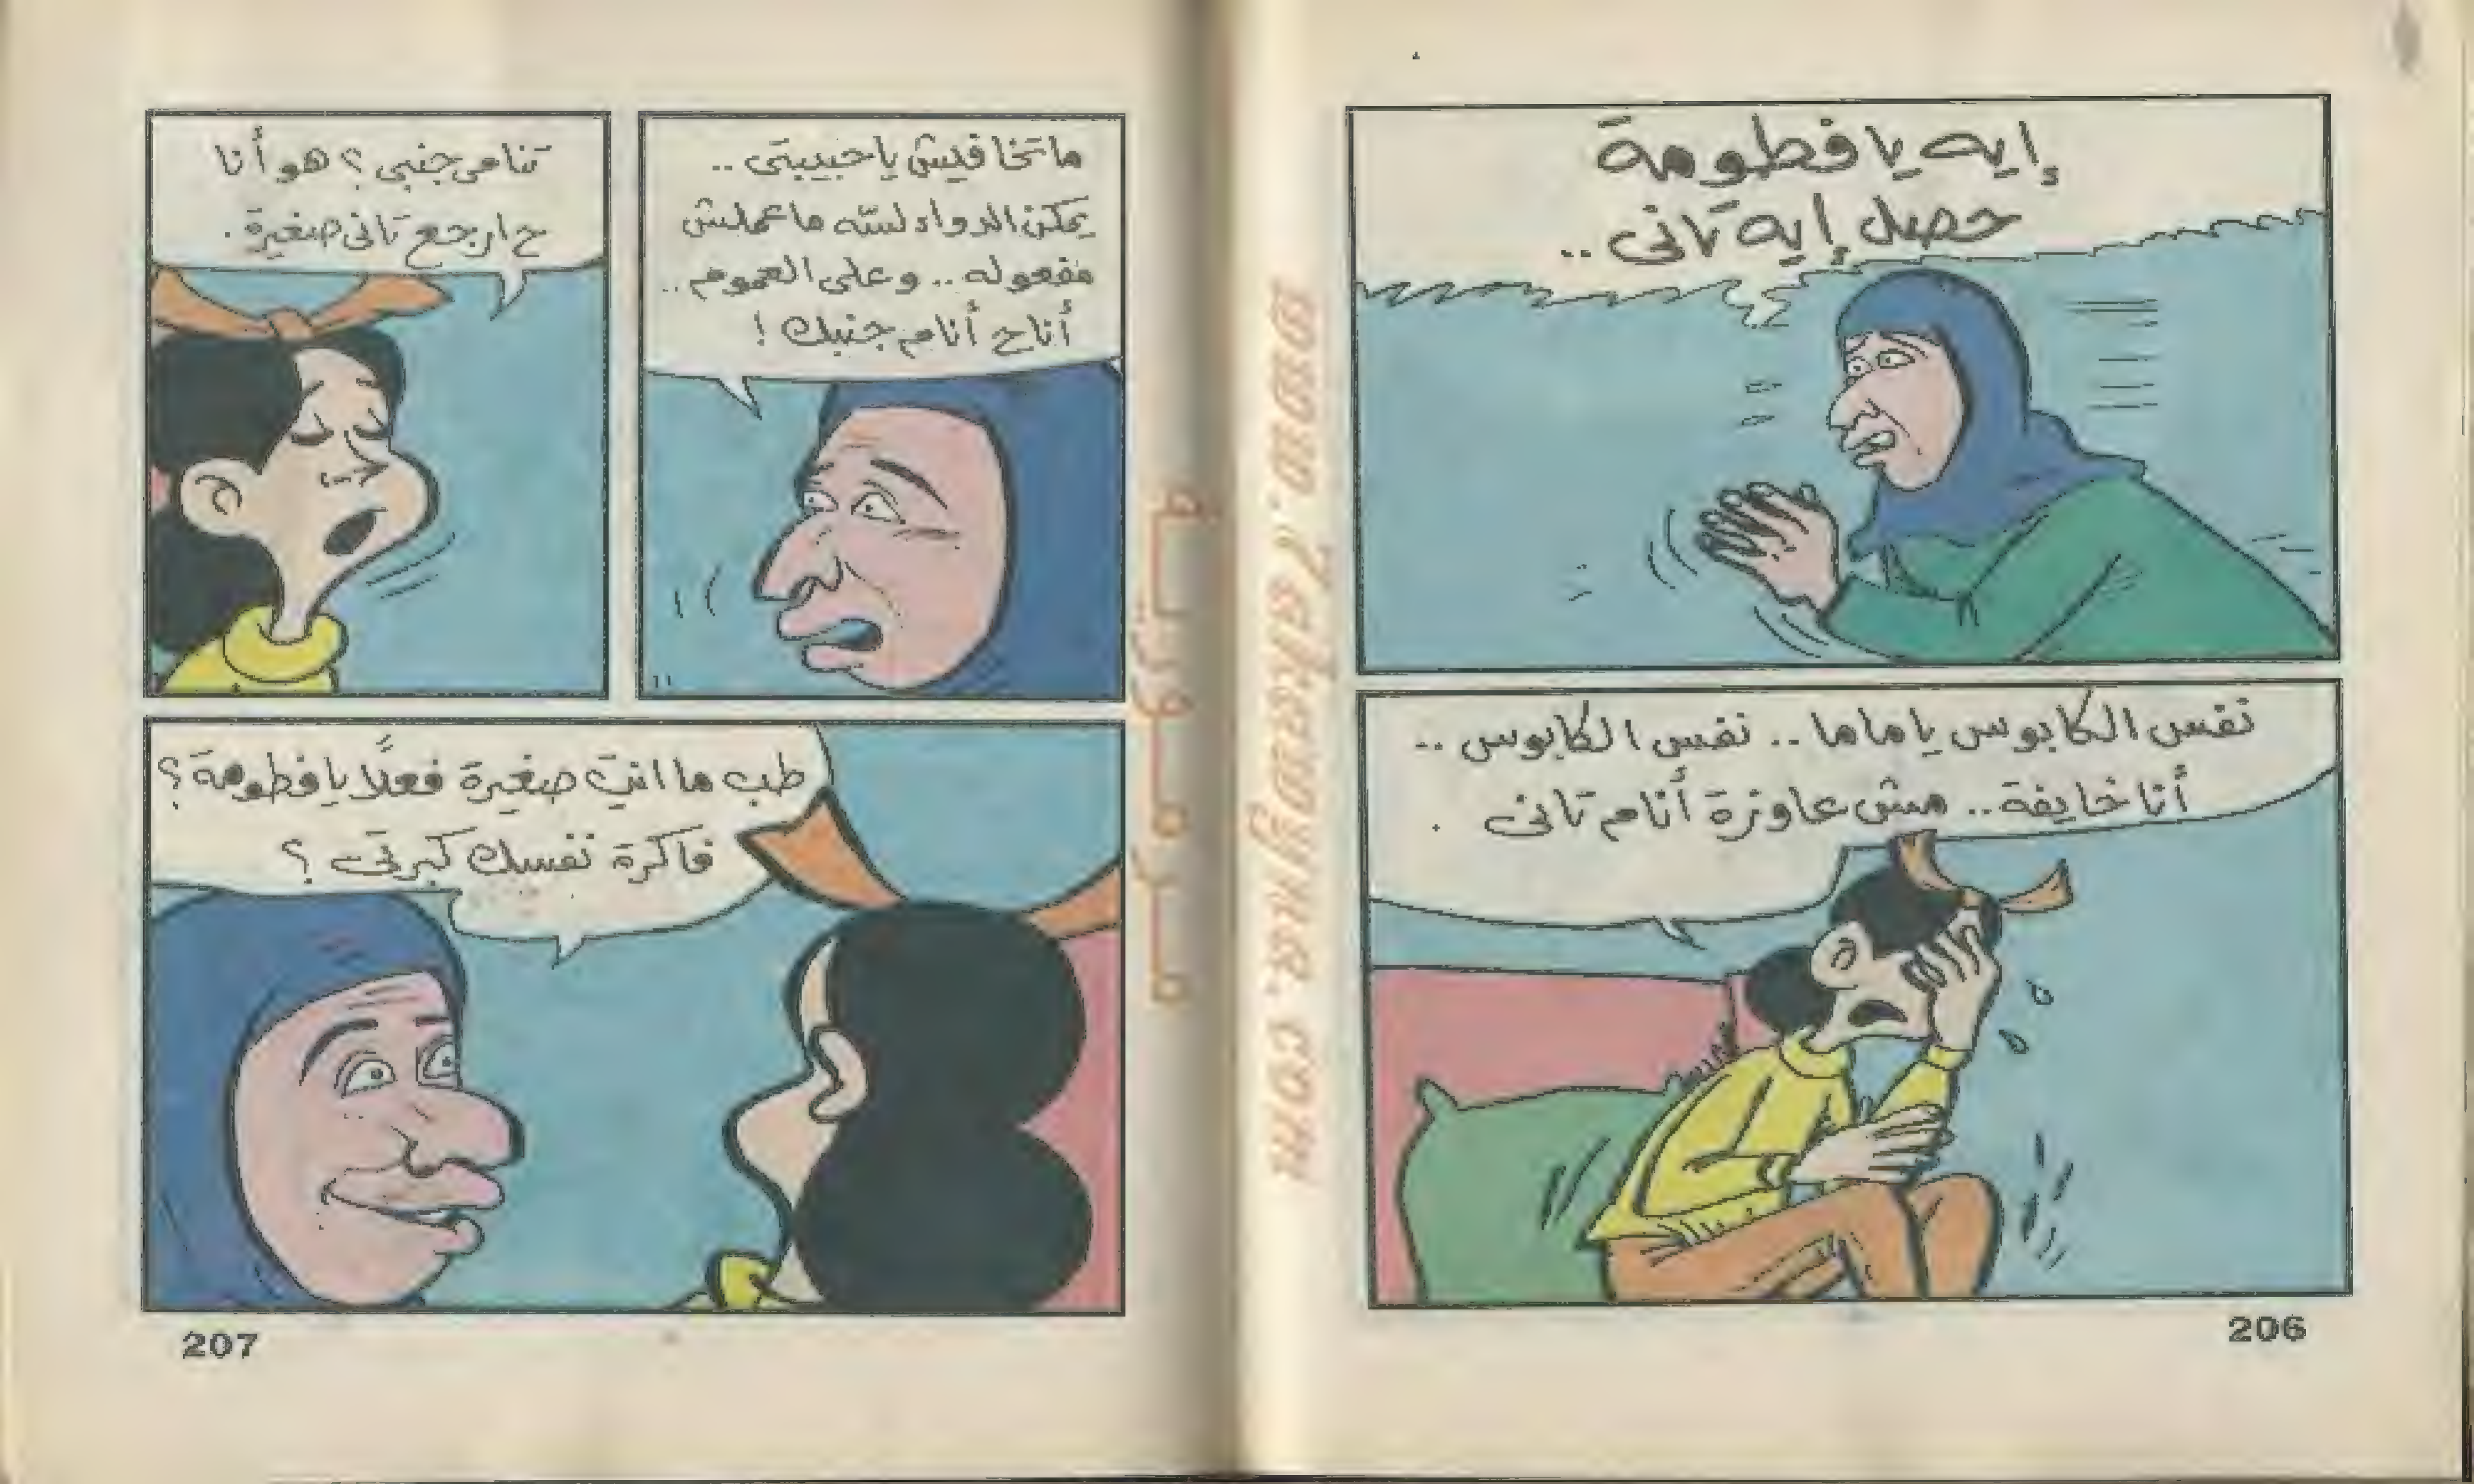 إيه يا فطومة
حصل إيه تانى ..
نفس الكابوس يا ماما .. نفس الكابوس ..
أنا خايفة .. مش عاوزة أنام تانى .
206
ما تخافيش يا حبيبتى ..
يمكن الدواء لسّه ما عملش
مفعوله .. وعلى العموم ..
أنا ح أنام جنبك !
تنامى جنبى ؟ هو أنا
ح ارجع تانى صغيرة .
طب ما انتِ صغيرة فعلاً يا فطومة ؟
فاكرة نفسك كبرتى ؟
207